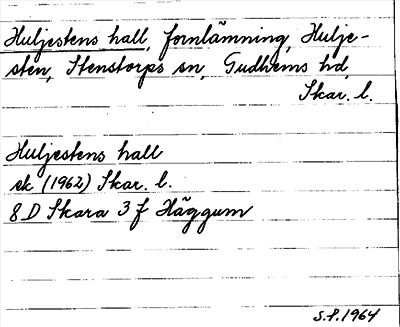 Huljestens hall, fornlämning, Hulje-
sten, Stenstorps sn, Gudhems hd,
Skar. l.
Huljestens hall
ek (1962) Skar. l.
8 D Skara 3 f Häggum
S.F. 1964